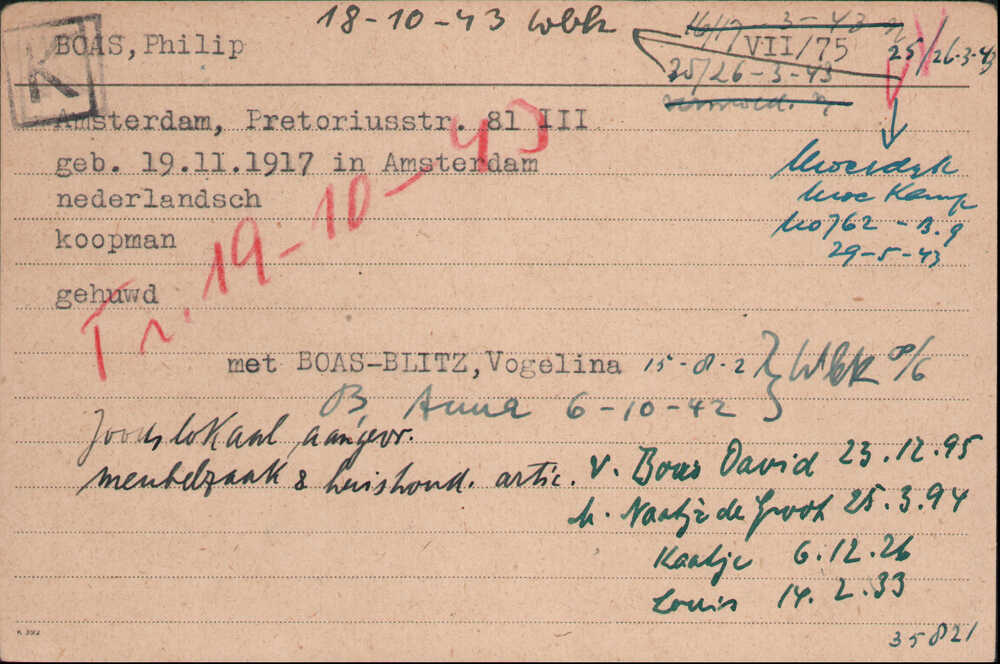 18-10-43 Wbk
16/17-3-43
K
BOAS, Philip
VII/75
25/26-3-43
25/26-3-43
Amsterdam, Pretoriusstr. 81 III
geb. 19.11.1917 in Amsterdam
nederlandsch
koopman
29-5-43
gehuwd
Tr. 19-10-43
met BOAS-BLITZ, Vogelina 15-8-2 } Wbk 8/6
B, Anna 6-10-42
Joods lokaal aangevr.
meubelzaak & huishoud. artic.
v. Boas David 23.12.95
M. Naatje de Groot 25.3.94
Kaatje 6.12.26
Louis 14.2.33
K 392
35821